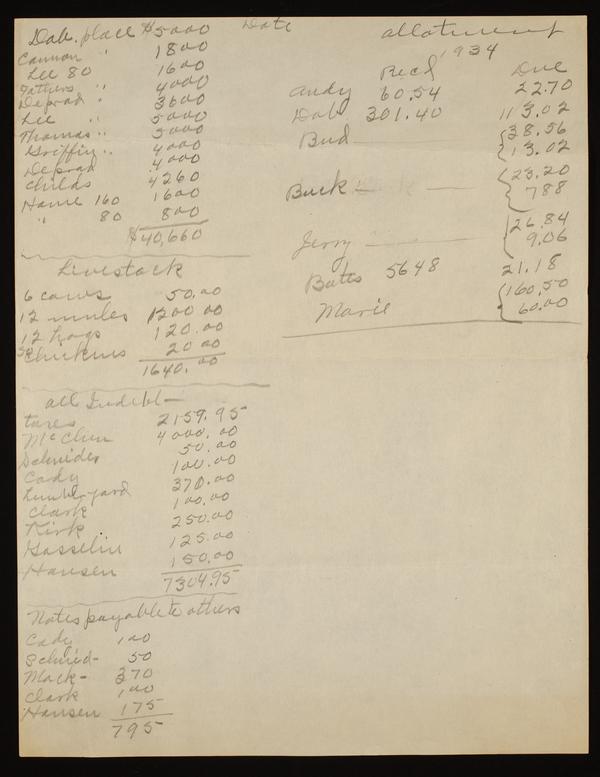 Dab. place $5000
Cannon " 1800
Lee 80 1600
Fathers " 4000
Deprad " 3600
Lee " 5000
Thomas " 5000
Griffin " 4000
Deprad 4000
Childs 4260
Home 160 1600
" 80 800
$40,660
Livestock
6 cows 50.00
12 mules 1200 00
12 hogs 120.00
50 Chickens 20 00
1640.00
All Indebt-
taxes 2159.95
McClen 4000.00
Schneider 50.00
Cady 100.00
Lumberyard 370.00
Clark 100.00
Kirk 250.00
Gasselin 125.00
Hansen 150.00
7304.95
Notes payable to others
Cady 100
Schnid- 50
Mack- 370
Clark 100
Hansen 175
795
Date
allotment
1934
Recd Due
Andy 60.54 22.70
Dab 301.40 113.02
Bud 38.56
13.02
Buck 23.20
788
Jerry 26.84
9.06
Batts 5648 21.18
Marie 160.50
60.00